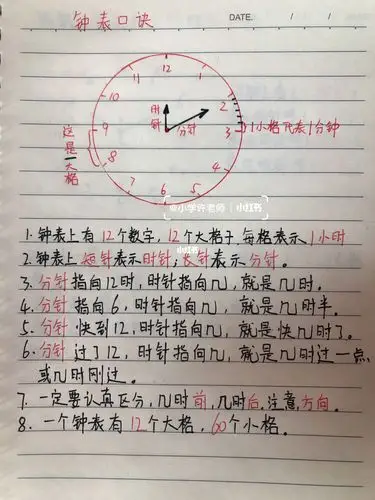 钟表口诀
DATE. / /
12
11
1
10
2
时针
分针
9
3
1小格代表1分钟
这是一大格
8
4
7
5
6
@小学许老师 小红书
1. 钟表上有12个数字,12个大格子,每格表示1小时
2. 钟表上短针表示时针;长针表示分针。
3. 分针指向12时,时针指向几,就是几时。
4. 分针指向6,时针指向几,就是几时半。
5. 分针快到12,时针指向几,就是快几时了。
6. 分针过了12,时针指向几,就是几时过一点,
或几时刚过。
7. 一定要认真区分,几时前,几时后,注意方向。
8. 一个钟表有12个大格,60个小格。